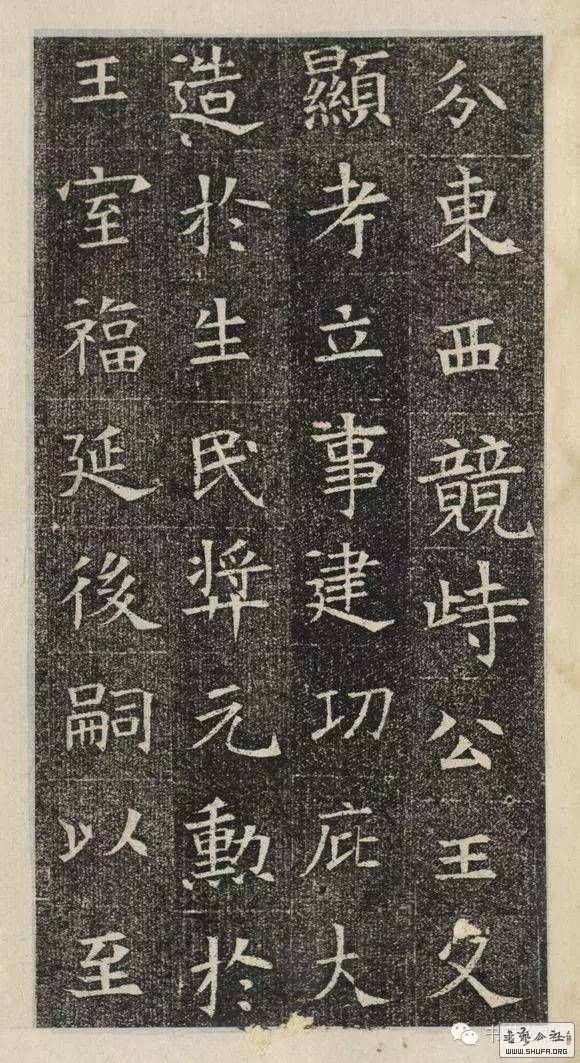 分東西競峙公王父
顯考立事建功庇大
造於生民奬元勳於
王室福延後嗣以至
书艺公社
WWW.SHUFA.ORG